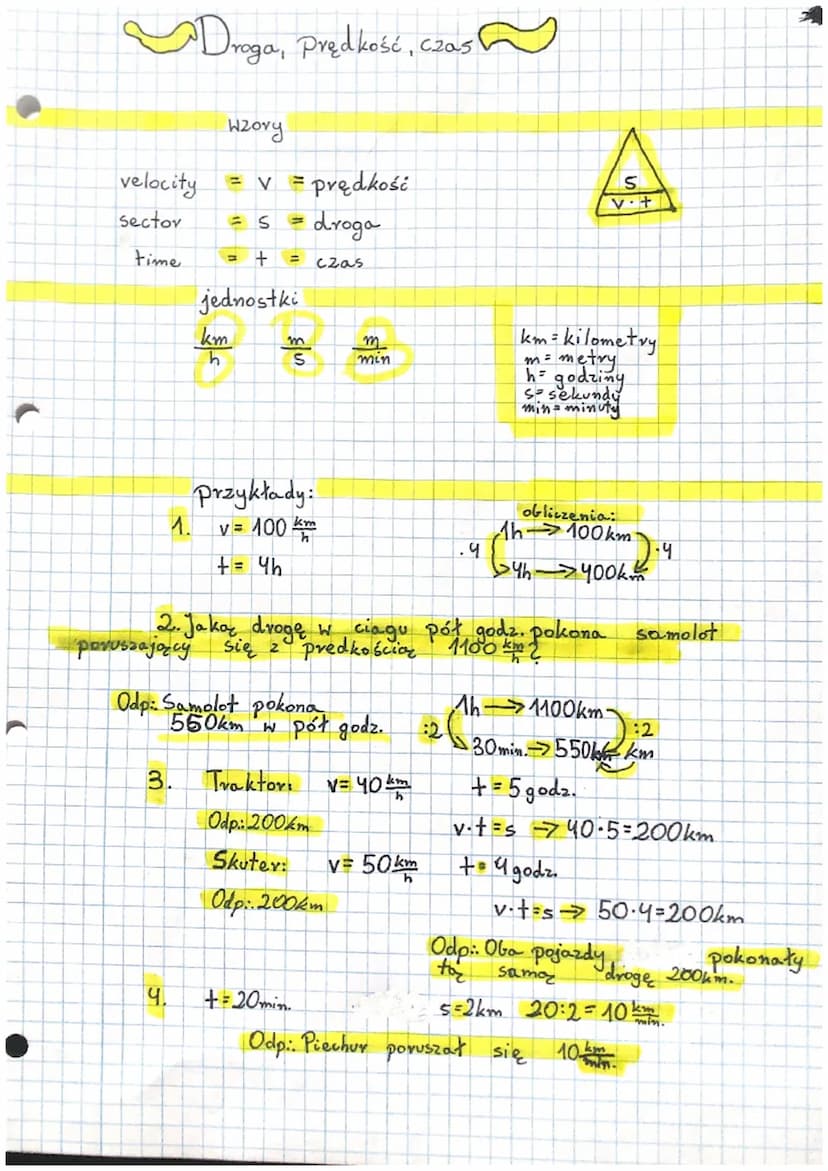 Droga, prędkość, czas
wzory
velocity = v = prędkość
sector = s = droga
time = t = czas
s
v · t
jednostki
km/h m/s m/min
km = kilometry
m = metry
h = godziny
s = sekundy
min = minuty
przykłady:
1. v = 100 km/h
t = 4h
obliczenia:
1h → 100km
·4 ·4
4h → 400km
2. Jaką drogę w ciągu pół godz. pokona samolot
poruszający się z prędkością 1100 km/h?
Odp.: Samolot pokona
550km w pół godz.
1h → 1100km
:2 :2
30min. → 550 km
3. Traktor: v = 40 km/h t = 5 godz.
Odp.: 200km v·t=s → 40·5=200km
Skuter: v = 50 km/h t = 4 godz.
Odp.: 200km v·t=s → 50·4=200km
Odp.: Oba pojazdy pokonały
tą samą drogę 200km.
4. t = 20min. s=2km 20:2=10 km/min.
Odp.: Piechur poruszał się 10 km/min.